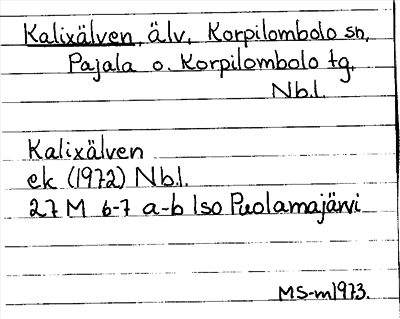 Kalixälven, älv, Korpilombolo sn,
Pajala o. Korpilombolo tg,
Nb.l.
Kalixälven
ek (1972) Nb.l.
27 M 6-7 a-b Iso Puolamajärvi
MS-m1973.